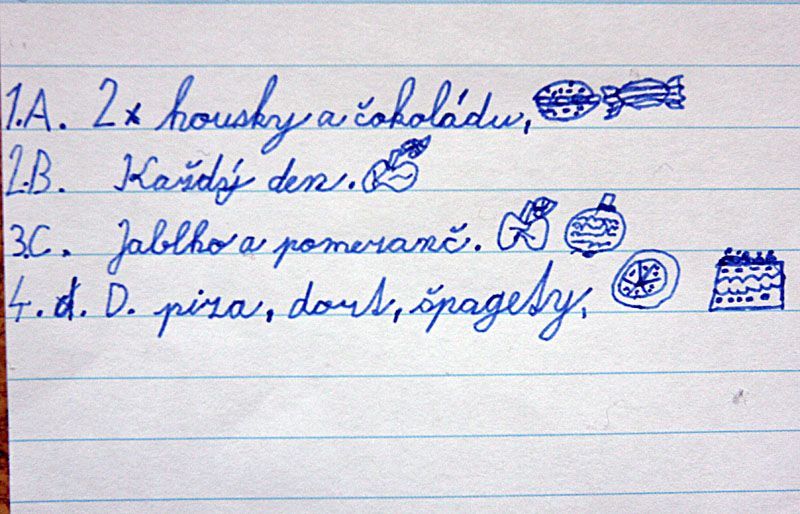 1.A. 2x housky a čokoládu,
2.B. Každý den.
3.C. Jablko a pomeranč.
4. d. D. piza, dort, špagety,